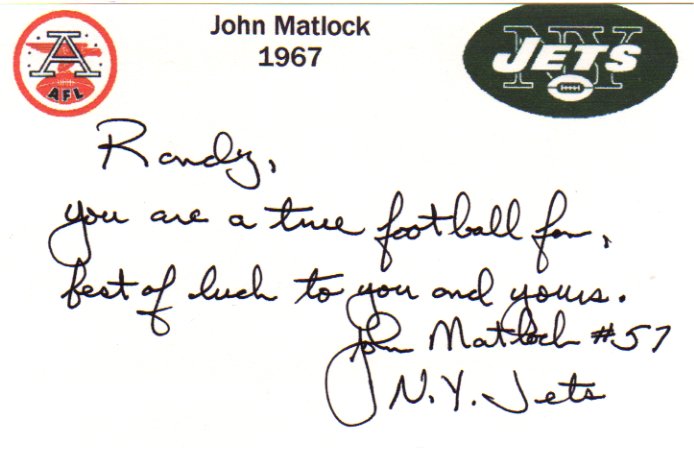 John Matlock
1967
A
AFL
NY
JETS
Randy,
you are a true football fan,
best of luck to you and yours.
John Matlock #57
N.Y. Jets